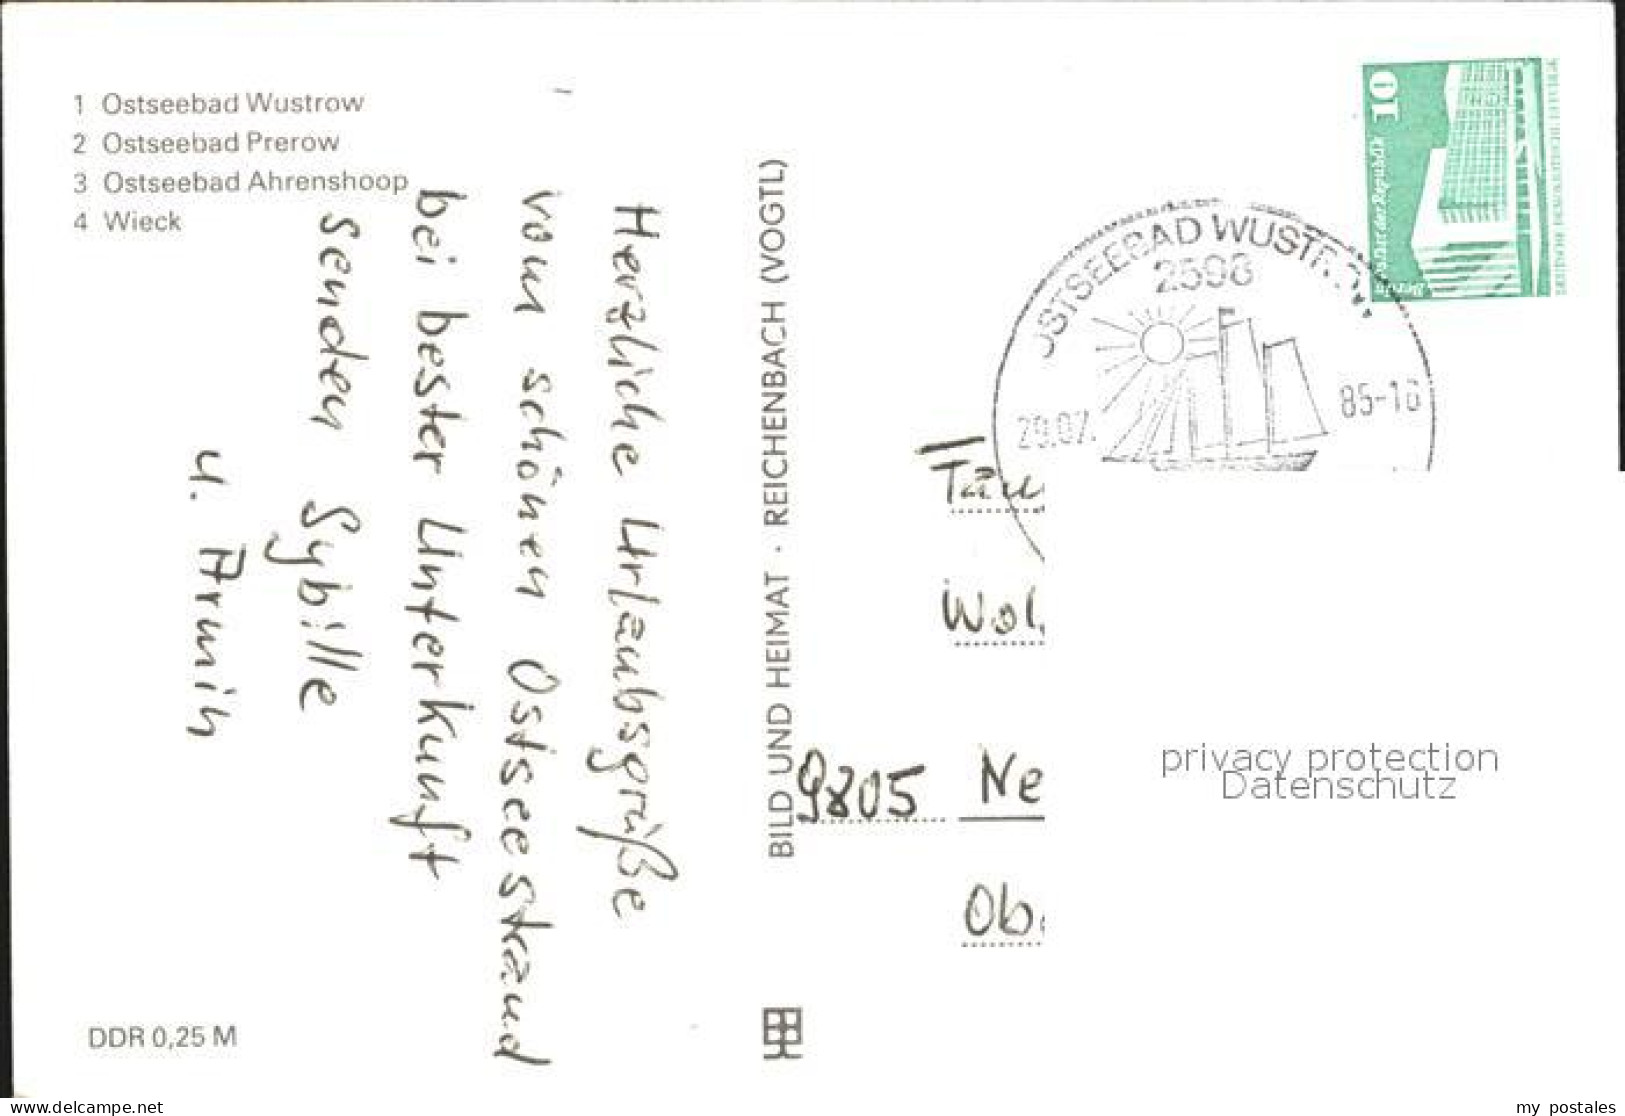 1 Ostseebad Wustrow
2 Ostseebad Prerow
3 Ostseebad Ahrenshoop
4 Wieck
Herzliche Urlaubsgrüße
vom schönen Ostseestrand
bei bester Unterkunft
senden Sybille
u. Armin
DDR 0,25 M
BILD UND HEIMAT · REICHENBACH (VOGTL)
10
Palast der Republik
Berlin
DEUTSCHE DEMOKRATISCHE REPUBLIK
OSTSEEBAD WUSTROW
2598
29.07. 85-16
Fam
Wol
9805 Ne
Ob
privacy protection
Datenschutz
www.delcampe.net
my_postales